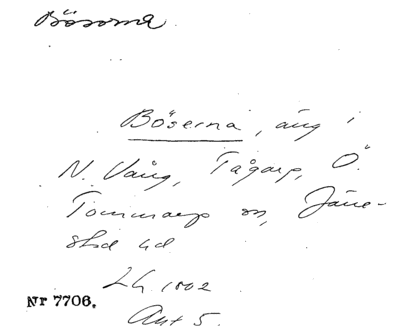 Bösorna
Böserna, äng i
N. Vång, Tågarp, Ö.
Tommarp sn, Järre-
stad hd
LG. 1802
Akt 5.
Nr 7706.